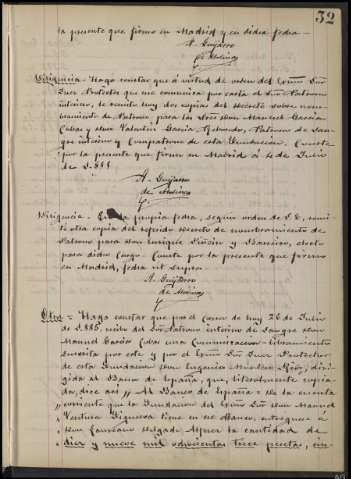 32
la presente que firmo en Madrid y en dicha fecha
A. Guijarro
de Molina
Diligencia - Hago constar que á virtud de orden del Excmo Señor
Juez Protector que me comunica por carta el Sr Patrono
interino, le remito hoy dos copias del decreto sobre nom-
bramiento de Patrono, para los Sres Don Manuel García
Cubas y Don Valentín García Redondo, Patrono de San-
gre interino y Compatrono de esta Fundacion. Conste
por la presente que firmo en Madrid á 4 de Julio
de 1.885
A. Guijarro
de Molina
Diligencia - En la propia fecha, según orden de S.E. remi-
tí otra copia del referido decreto de nombramiento de
Patrono para Don Enrique y Barreiro, electo
para dicho cargo. Conste por la presente que firmo
en Madrid, fecha ut supra
A. Guijarro
de Molina
Otra - Hago constar que por el correo de hoy 26 de Julio
de 1.885, recibo del Sr Patrono interino de Sangre Don
Manuel García Cubas una Comunicacion-libramiento
suscrita por este y por el Excmo Sr Juez Protector
de esta Fundacion Don Eugenio Montero Rios, diri-
gida al Banco de España, que, literalmente copia-
da, dice así „ Al Banco de España = De la cuenta
„corriente que la Fundacion del Excmo Sr Don Manuel
Ventura Figueroa tiene en ese Banco, entreguese á
Don Laureano Delgado Alferez la cantidad de
diez y nueve mil ochocientas trece pesetas, cin-